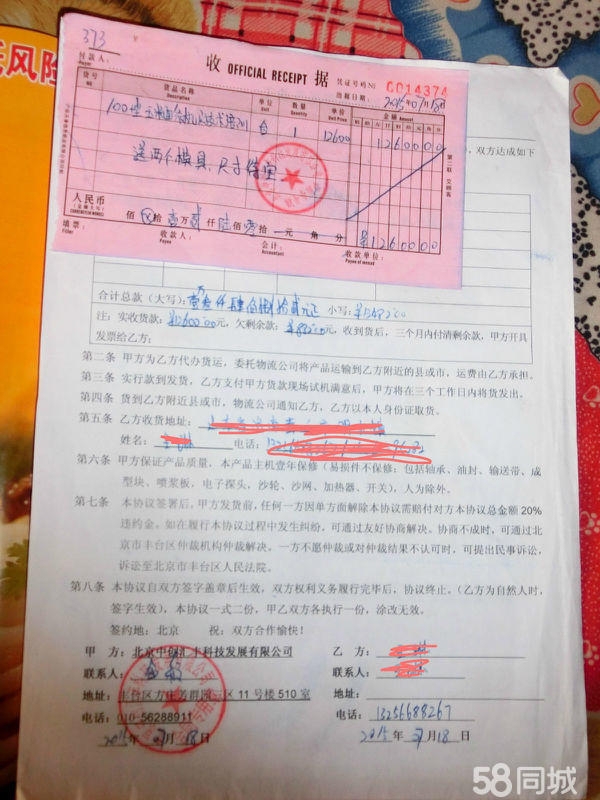 风险
373
付款人：
Payer
收 OFFICIAL RECEIPT 据
凭证号码 №
0014374
出据日期：2015年07月18日
货号
No
货品名称
Description
单位
Unit
数量
Quantity
单价
Unit Price
金额
Amount
台 1 12600 1260000
送两个模具，尺寸待定
第二联 交顾客
人民币
佰 ⊗拾 壹万 贰仟 陆佰 零拾 元 角 分 ¥1260000
填票：
Filler
收款人：
Payee
会计：
Accountant
收款单位：
，双方达成如下
合计总款（大写）： 小写：
注：实收货款： 欠剩余款： 收到货后，三个月内付清剩余款，甲方开具
发票给乙方；
第二条 甲方为乙方代办货运，委托物流公司将产品运输到乙方附近的县或市，运费由乙方承担。
第三条 实行款到发货，乙方支付甲方货款现场试机满意后，甲方将在三个工作日内将货发出。
第四条 货到乙方附近县或市，物流公司通知乙方，乙方以本人身份证取货。
第五条 乙方收货地址：
姓名： 电话：
第六条 甲方保证产品质量，本产品主机壹年保修（易损件不保修：包括轴承、油封、输送带、成
型块、喷浆板、电子探头、沙轮、沙网、加热器、开关），人为除外。
第七条 本协议签署后，甲方发货前，任何一方因单方面解除本协议需赔付对方本协议总金额 20%
违约金。如在履行本协议过程中发生纠纷，可通过友好协商解决。协商不成时，可通过北
京市丰台区仲裁机构仲裁解决。一方不愿仲裁或对仲裁结果不认可时，可提出民事诉讼，
诉讼至北京市丰台区人民法院。
第八条 本协议自双方签字盖章后生效，双方权利义务履行完毕后，协议终止。（乙方为自然人时，
签字生效），本协议一式二份，甲乙双方各执行一份，涂改无效。
签约地：北京 祝：双方合作愉快！
甲 方：北京中创汇丰科技发展有限公司
联系人：
地址：丰台区方庄芳群园 区 11 号楼 510 室
电话：010-56288911
2015年07月18日
乙 方：
联系人：
地址：
电话：13256688267
2015年07月18日
58同城